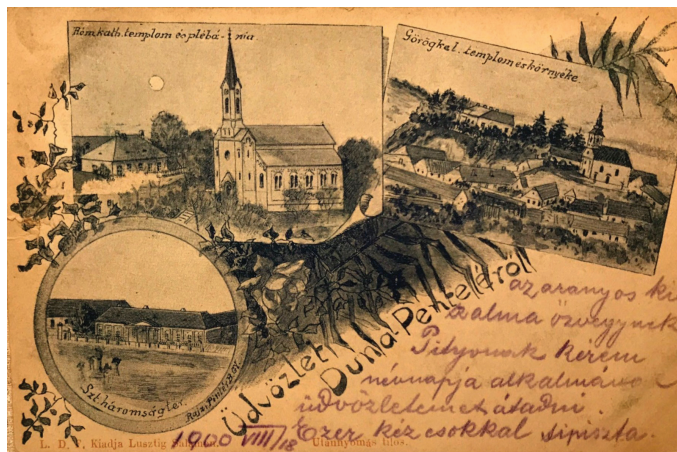 Róm.kath. templom és plébá-nia.
Görögkel. templom és környéke.
Szt háromságtér.
Üdvözlet
Duna-Penteléről
az aranyos ki
özvegynek
kérem
névnapja alkalmával
üdvözletemet átadni.
Ezer kézcsokkal
1900 VIII/18
L. D. V. Kiadja Lusztig
Utánnyomás tilos.